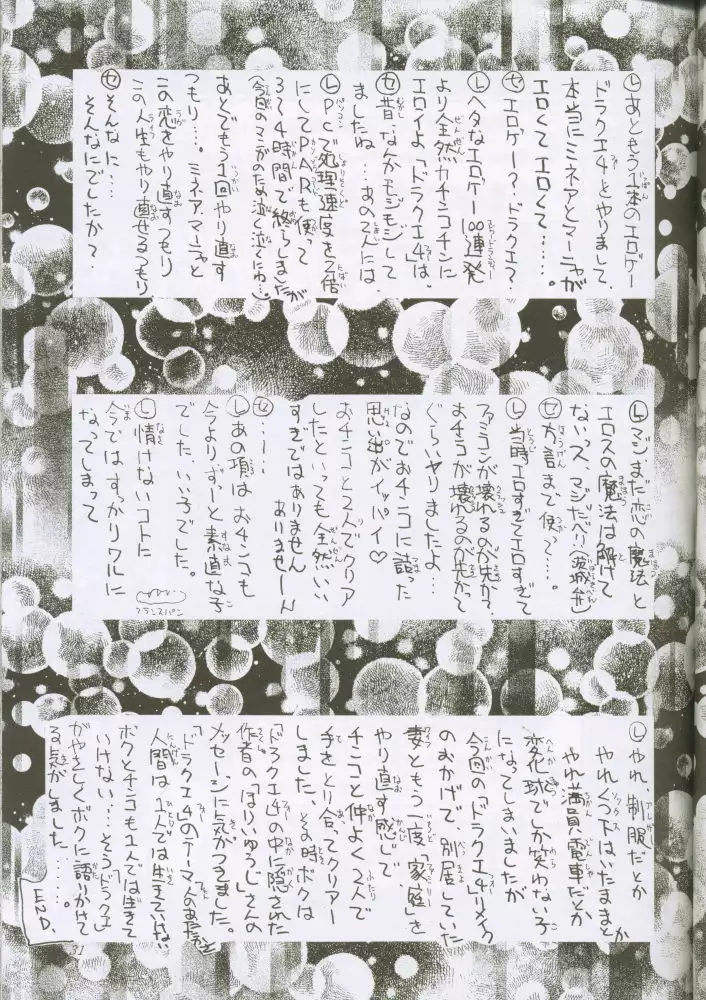 Ⓛあともう1本のエロゲー
ドラクエ4とやりまして、
本当にミネアとマーニャが
エロくてエロくて……。
Ⓢエロゲー?ドラクエ?
Ⓛヘタなエロゲー100連発
より全然カチンコチンに
エロイよ「ドラクエ4」は、
Ⓢ昔なんかモジモジして
ましたね…あの2人には、
ⓁPCで処理速度を2倍
にしてPARも使って
3〜4時間で終らしましたが
(今回のマンガのため泣く泣くにゅ…)
あとでもう1回やり直す
つもり…。ミネア、マーニャと
この恋をやり直すつもり
この人生もやり直せるつもり
Ⓢそんなに…
そんなにでしたか?
Ⓛマジまだ恋の魔法と
エロスの魔法は解けて
ないっス、マジだべリ(茨城弁)
Ⓢ方言まで使って…。
Ⓛ当時エロすぎてエロすぎて
ファミコンが壊れるのが先か?
おチコが壊れるのが先かって
ぐらいヤりましたよ…
なのでおチンコに詰った
思い出がイッパイ♡
おチンコと2人でクリア
したといっても全然いい
すぎではありません
ありませーん
Ⓢ……
Ⓛあの頃はおチンコも
今よりずーと素直な子
でした、いい子でした。
Ⓛ情けないコトに
今ではすっかりワルに
なってしまって
フランスパン
Ⓛやれ、制服だとか
やれくつ下はいたままとか
やれ満員電車だとか
変化球でしか笑わない子
になってしまいましたが
今回の「ドラクエ4」リメイク
のおかげで、別居していた
妻ともう一度「家庭」を
やり直す感じで、
チンコと仲よく2人で
手をとり合ってクリアー
しました、その時ボクは
「ドラクエ4」の中に隠された
作者の「ほりいゆうじ」さんの
メッセージに気がつきました。
「ドラクエ4」のテーマ「人のあたたかさ」
人間は1人では生きていけない
ボクとチンコも1人では生きて
いけない…そうドラクエ
がやさしくボクに語りかけて
る気がしました……。
END.
31